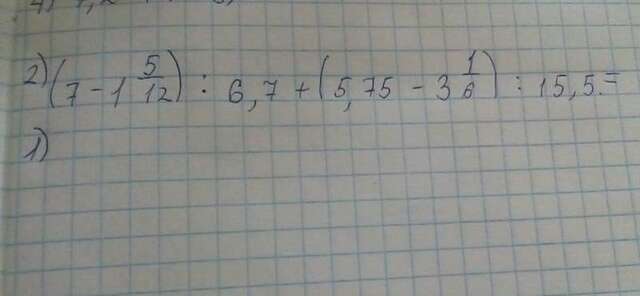 2) (7 - 1 5/12) : 6,7 + (5,75 - 3 1/6) : 15,5. =
1)